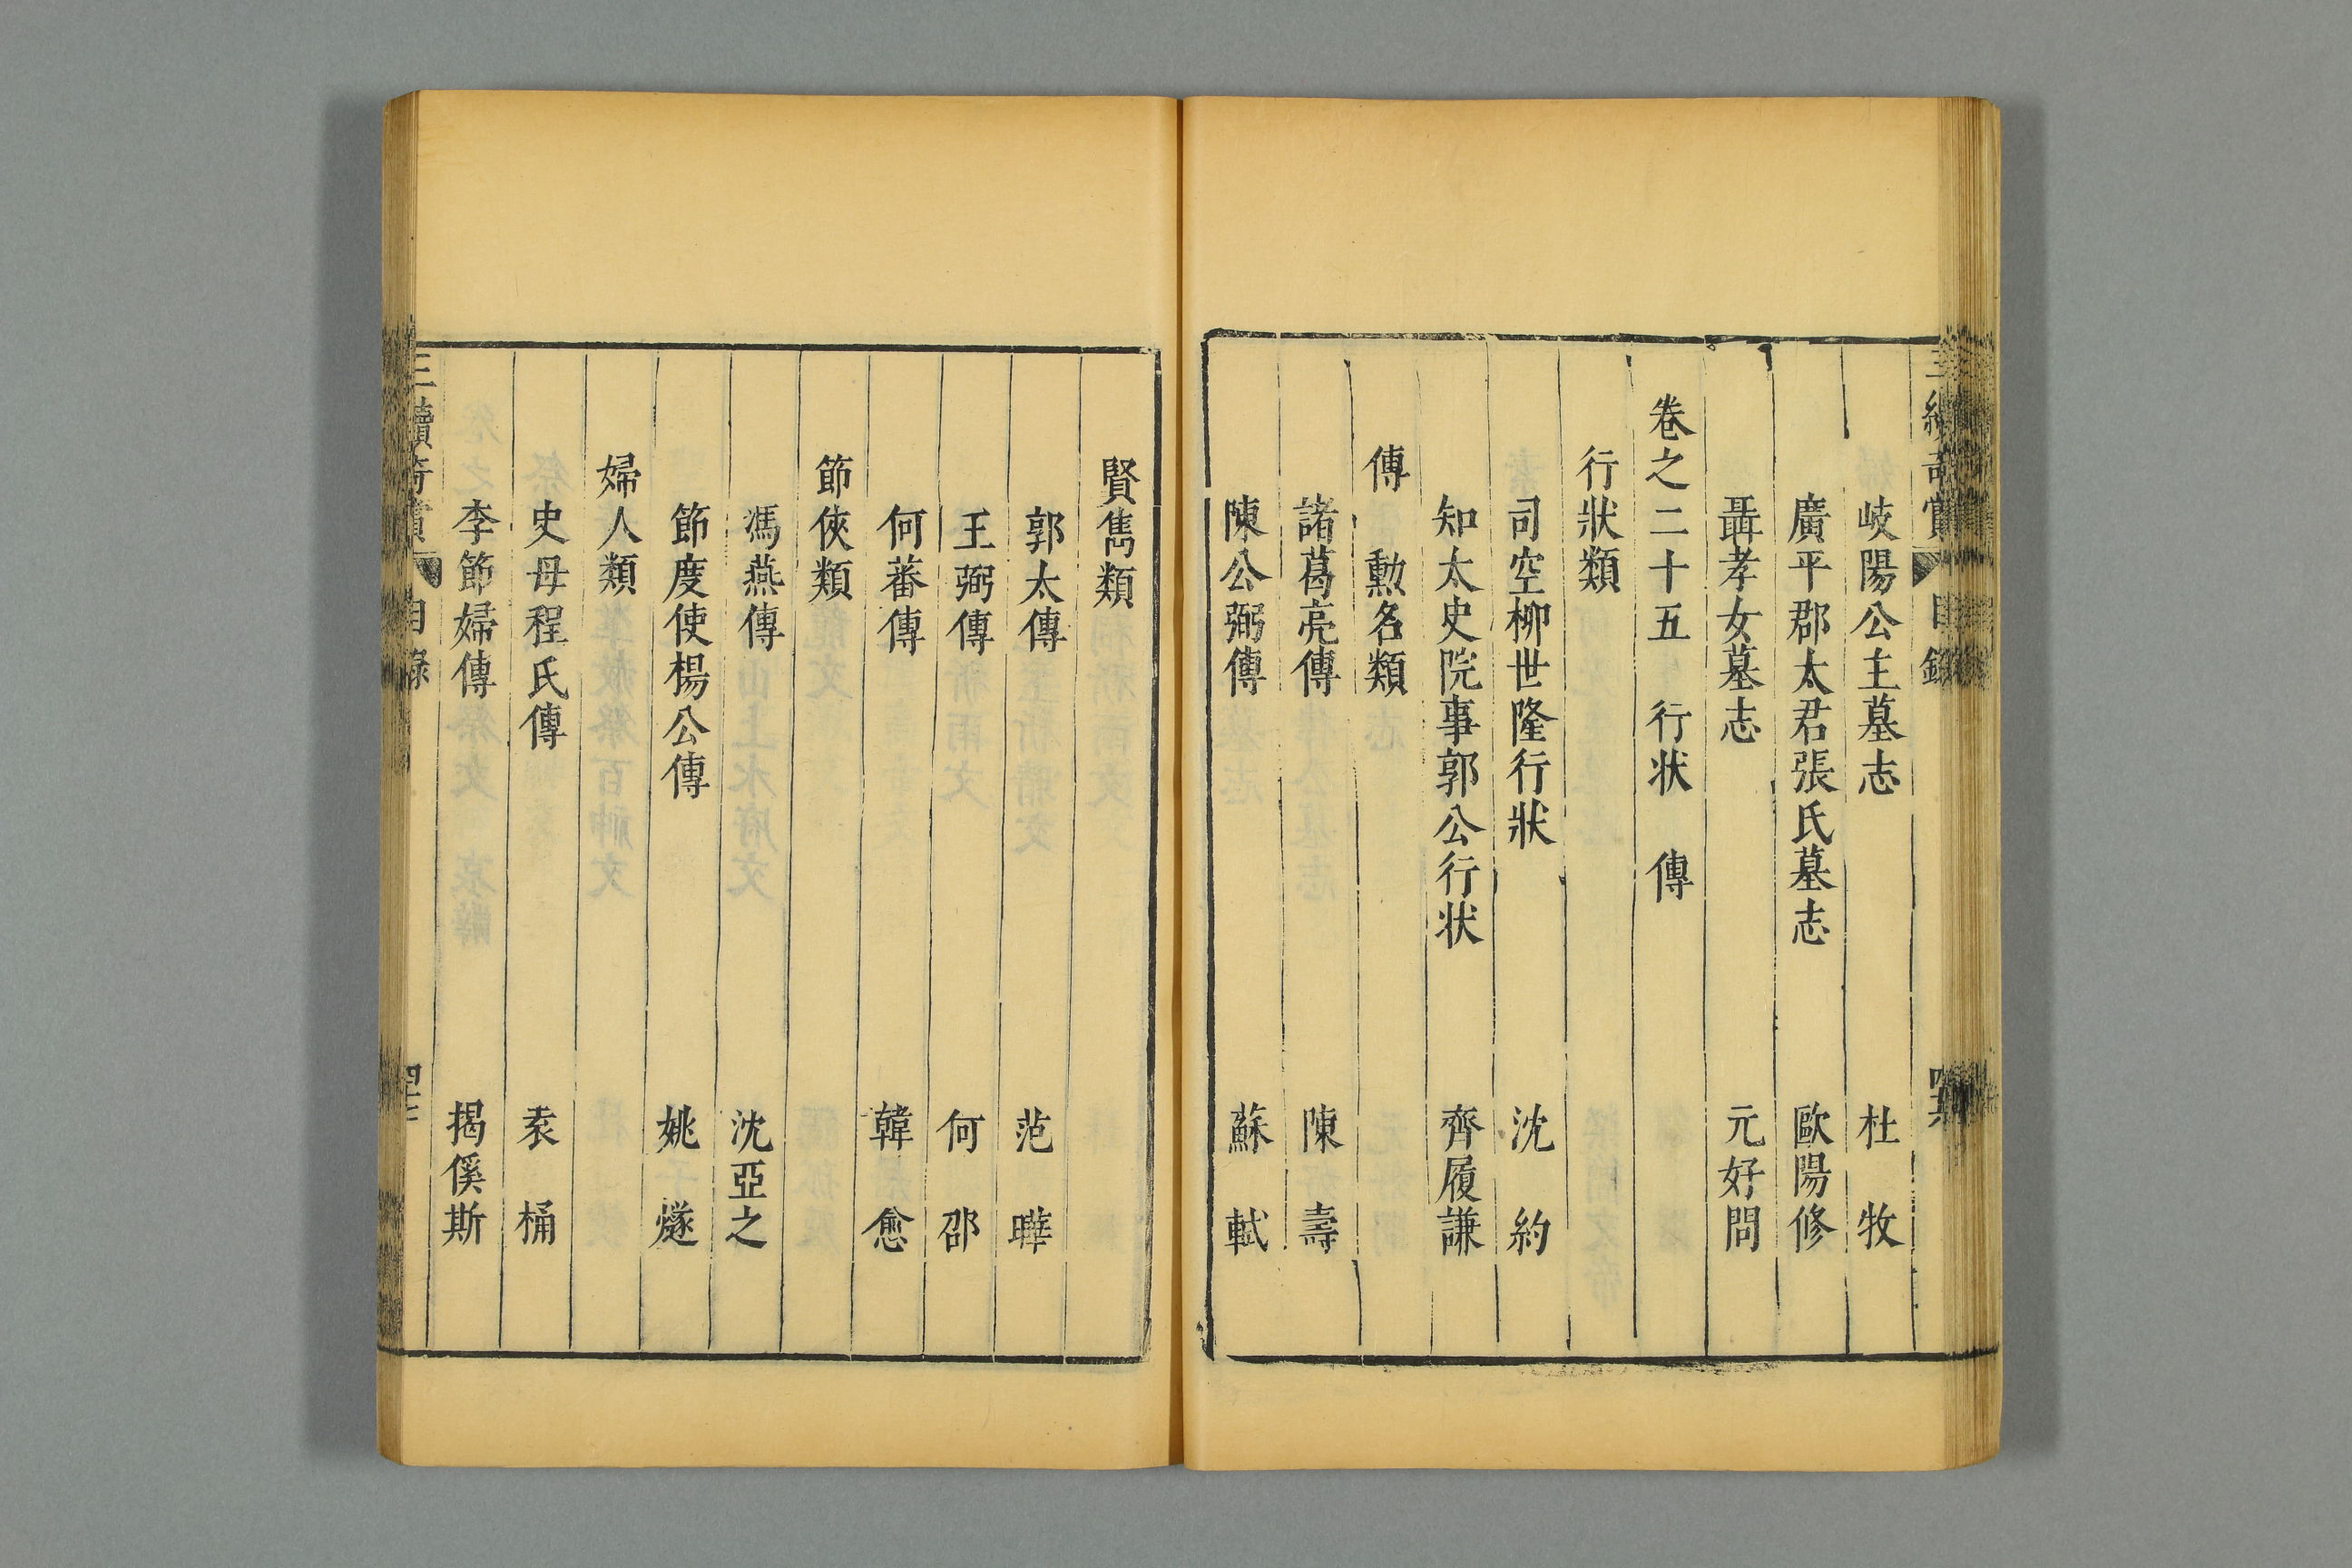 岐陽公主墓志 杜牧
廣平郡太君張氏墓志 歐陽修
聶孝女墓志 元好問
卷之二十五 行狀 傳
行狀類
司空柳世隆行狀 沈約
知太史院事郭公行狀 齊履謙
傳 勲名類
諸葛亮傳 陳壽
陳公弼傳 蘇軾
賢雋類
郭太傳 范曄
王弼傳 何邵
何蕃傳 韓愈
節俠類
馮燕傳 沈亞之
節度使楊公傳 姚燧
婦人類
史母程氏傳 袁桷
李節婦傳 揭傒斯
三續奇賞 目錄